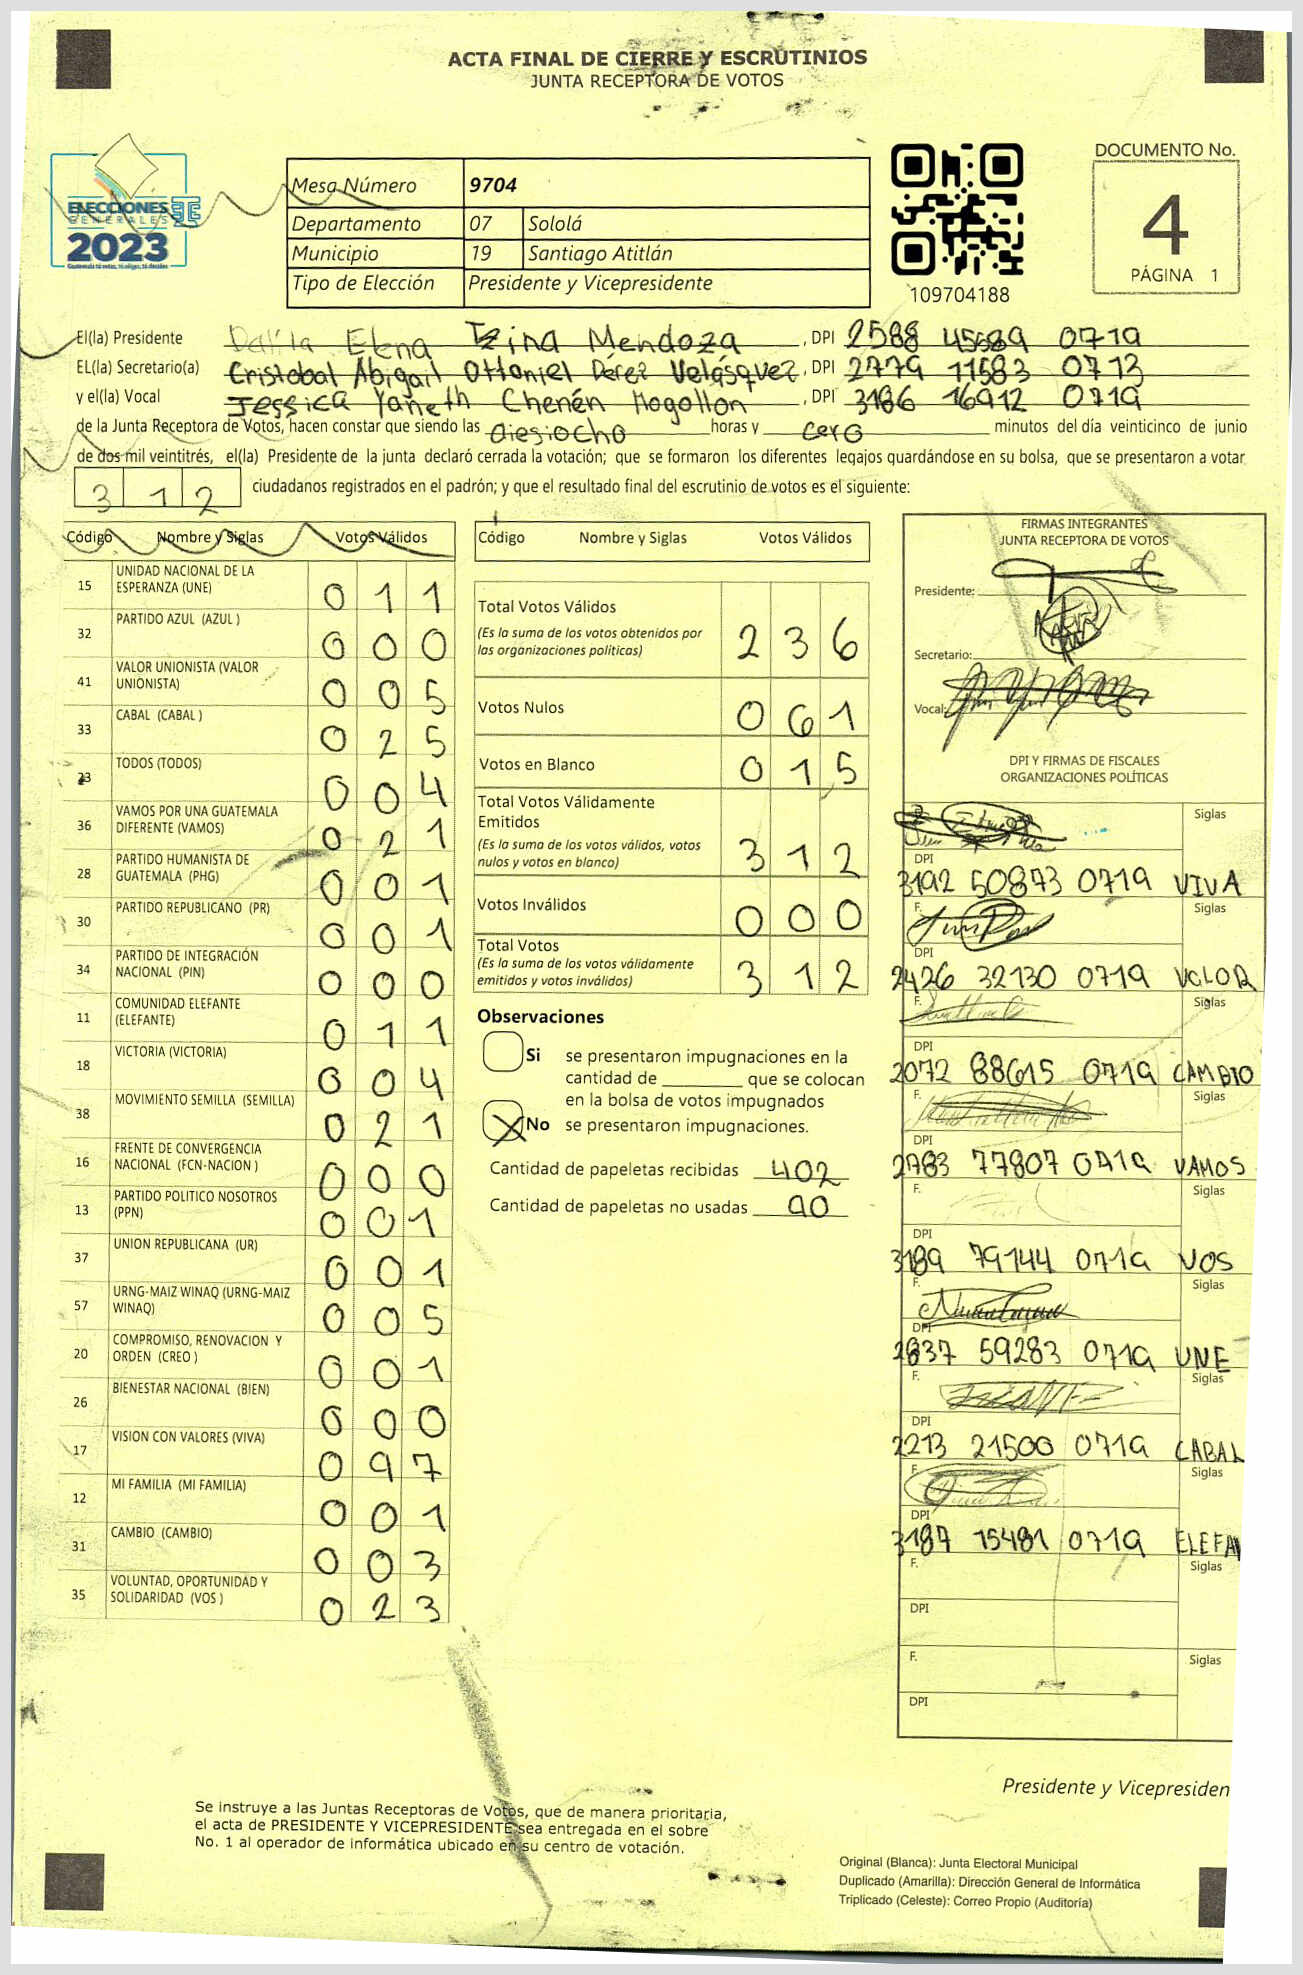 ACTA FINAL DE CIERRE Y ESCRUTINIOS
JUNTA RECEPTORA DE VOTOS
ELECCIONES
GENERALES
2023
Mesa Número 9704
Departamento 07 Sololá
Municipio 19 Santiago Atitlán
Tipo de Elección Presidente y Vicepresidente
109704188
DOCUMENTO No.
4
PÁGINA 1
El(la) Presidente Dalila Elena Tzina Mendoza, DPI 2588 45689 0719
EL(la) Secretario(a) Cristobal Abigail Ottoniel Pérez Velásquez, DPI 2779 11583 0713
y el(la) Vocal Jessica Yaneth Chenén Mogollon, DPI 3186 16912 0719
de la Junta Receptora de Votos, hacen constar que siendo las diesiocho horas y cero minutos del día veinticinco de junio
de dos mil veintitrés, el(la) Presidente de la junta declaró cerrada la votación; que se formaron los diferentes legajos quardándose en su bolsa, que se presentaron a votar
312 ciudadanos registrados en el padrón; y que el resultado final del escrutinio de votos es el siguiente:
Código Nombre y Siglas Votos Válidos
15 UNIDAD NACIONAL DE LA ESPERANZA (UNE) 011
32 PARTIDO AZUL (AZUL ) 000
41 VALOR UNIONISTA (VALOR UNIONISTA) 005
33 CABAL (CABAL ) 025
23 TODOS (TODOS) 004
36 VAMOS POR UNA GUATEMALA DIFERENTE (VAMOS) 021
28 PARTIDO HUMANISTA DE GUATEMALA (PHG) 001
30 PARTIDO REPUBLICANO (PR) 001
34 PARTIDO DE INTEGRACIÓN NACIONAL (PIN) 000
11 COMUNIDAD ELEFANTE (ELEFANTE) 011
18 VICTORIA (VICTORIA) 004
38 MOVIMIENTO SEMILLA (SEMILLA) 021
16 FRENTE DE CONVERGENCIA NACIONAL (FCN-NACION ) 000
13 PARTIDO POLITICO NOSOTROS (PPN) 001
37 UNION REPUBLICANA (UR) 001
57 URNG-MAIZ WINAQ (URNG-MAIZ WINAQ) 005
20 COMPROMISO, RENOVACION Y ORDEN (CREO ) 001
26 BIENESTAR NACIONAL (BIEN) 000
17 VISION CON VALORES (VIVA) 097
12 MI FAMILIA (MI FAMILIA) 001
31 CAMBIO (CAMBIO) 003
35 VOLUNTAD, OPORTUNIDAD Y SOLIDARIDAD (VOS ) 023
Código Nombre y Siglas Votos Válidos
Total Votos Válidos 236
(Es la suma de los votos obtenidos por
las organizaciones políticas)
Votos Nulos 061
Votos en Blanco 015
Total Votos Válidamente
Emitidos 312
(Es la suma de los votos válidos, votos
nulos y votos en blanco)
Votos Inválidos 000
Total Votos 312
(Es la suma de los votos válidamente
emitidos y votos inválidos)
Observaciones
Si se presentaron impugnaciones en la
cantidad de ________ que se colocan
en la bolsa de votos impugnados
X No se presentaron impugnaciones.
Cantidad de papeletas recibidas 402
Cantidad de papeletas no usadas 90
FIRMAS INTEGRANTES
JUNTA RECEPTORA DE VOTOS
Presidente:
Secretario:
Vocal:
DPI Y FIRMAS DE FISCALES
ORGANIZACIONES POLÍTICAS
Siglas
DPI
3192 50873 0719 VIVA
F. Siglas
DPI
2426 32130 0719 VALOR
F. Siglas
DPI
2072 88615 0719 CAMBIO
F. Siglas
DPI
2783 77807 0719 VAMOS
F. Siglas
DPI
3189 79144 0719 VOS
F. Siglas
DPI
2837 59283 0719 UNE
F. Siglas
DPI
2213 21500 0719 CABAL
F. Siglas
DPI
3187 15481 0719 ELEFAN
F. Siglas
DPI
F. Siglas
DPI
Presidente y Vicepresiden
Se instruye a las Juntas Receptoras de Votos, que de manera prioritaria,
el acta de PRESIDENTE Y VICEPRESIDENTE sea entregada en el sobre
No. 1 al operador de informática ubicado en su centro de votación.
Original (Blanca): Junta Electoral Municipal
Duplicado (Amarilla): Dirección General de Informática
Triplicado (Celeste): Correo Propio (Auditoría)